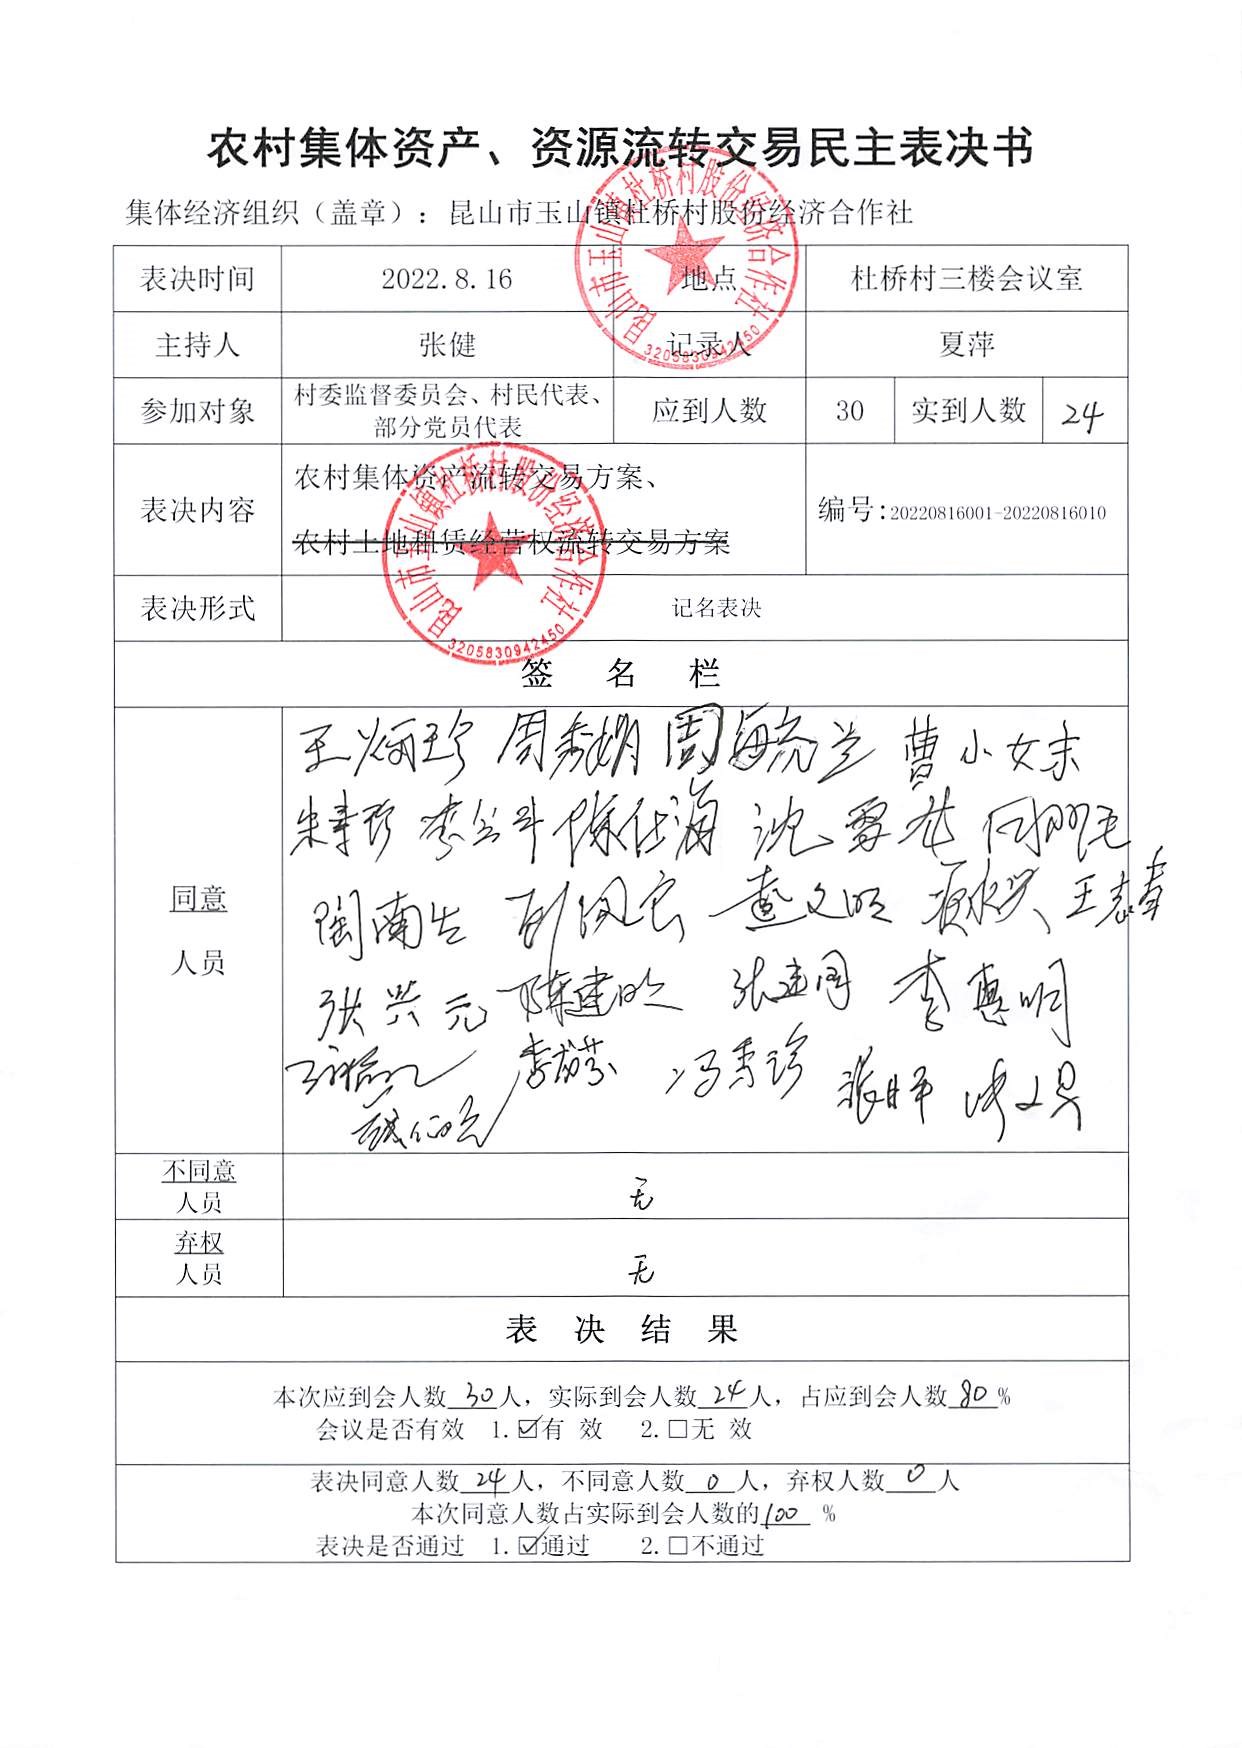 农村集体资产、资源流转交易民主表决书
集体经济组织（盖章）：昆山市玉山镇杜桥村股份经济合作社
表决时间 2022.8.16 地点 杜桥村三楼会议室
主持人 张健 记录人 夏萍
参加对象 村委监督委员会、村民代表、部分党员代表 应到人数 30 实到人数 24
表决内容 农村集体资产流转交易方案、
农村土地租赁经营权流转交易方案
编号：20220816001-20220816010
昆山市玉山镇杜桥村股份经济合作社
3205830942450
昆山市玉山镇杜桥村股份经济合作社
3205830942450
表决形式 记名表决
签 名 栏
同意
人员
王炳珍 周秀娟 周海元 兰 曹小女末
朱幸珍 李金斗 陈仕海 沈雪花
陶南生 查文明 王志春
张兴元 陈建明 张建国 李惠明
李菊芬 冯秀珍 张日平
不同意
人员
无
弃权
人员
无
表 决 结 果
本次应到会人数30人，实际到会人数24人，占应到会人数80%
会议是否有效 1.☑有 效 2.□无 效
表决同意人数24人，不同意人数0人，弃权人数0人
本次同意人数占实际到会人数的100 %
表决是否通过 1.☑通过 2.□不通过